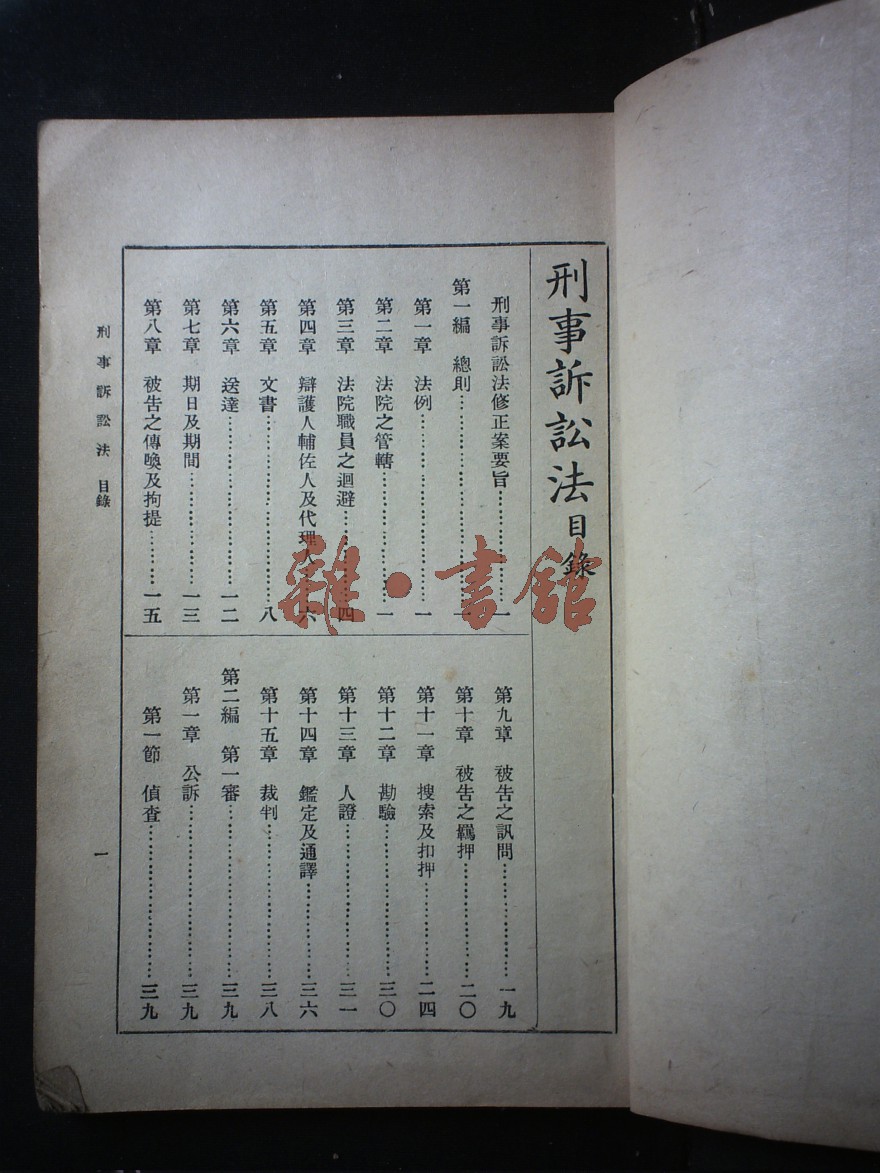 刑事訴訟法目錄
刑事訴訟法修正案要旨…………一
第一編　總則…………一
第一章　法例…………一
第二章　法院之管轄…………一
第三章　法院職員之迴避…………四
第四章　辯護人輔佐人及代理人…………六
第五章　文書…………八
第六章　送達…………一二
第七章　期日及期間…………一三
第八章　被告之傳喚及拘提…………一五
第九章　被告之訊問…………一九
第十章　被告之羈押…………二〇
第十一章　搜索及扣押…………二四
第十二章　勘驗…………三〇
第十三章　人證…………三一
第十四章　鑑定及通譯…………三六
第十五章　裁判…………三八
第二編　第一審…………三九
第一章　公訴…………三九
第一節　偵查…………三九
刑事訴訟法　目錄
一
雜·書館